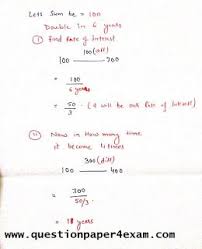 Lets Sum be = 100
Double in 6 years
(i) Find Rate of Interest.
100 (diff)
100 — 200
= 100
6 years
= 50
3 . ( a will be our Rate of Interest)
(ii) Now in How many time
it become 4 times
300 (diff)
100 — 400
= 300
50/3
= 18 years
www.questionpaper4exam.com